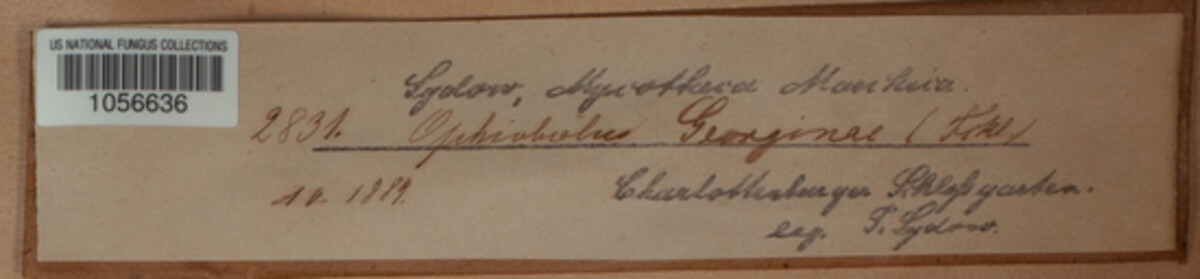 US NATIONAL FUNGUS COLLECTIONS
1056636
Sydow, Mycotheca Marchica.
2831. Ophiobolus Georginae (Fckl.)
10. 1889.
Charlottenburger Schloßgarten.
leg. P. Sydow.